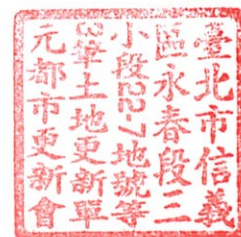 臺北市信義
區永春段三
小段22-7地號等
3筆土地更新單
元都市更新會